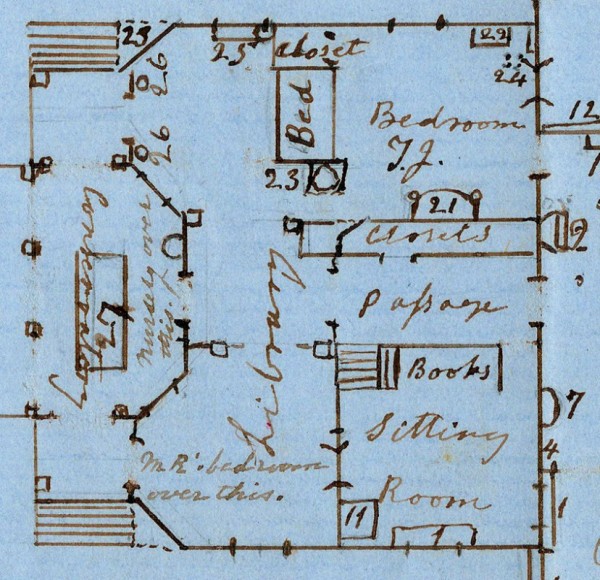 25
25
Closet
22
24
26
Bed
Bedroom
T.J.
12
26
23
21
Closets
9
Conservatory
Nursery over
this.
27
Library
Passage
Books
7
Sitting
Room
4
1
Mr. R's. bedroom
over this.
11
1